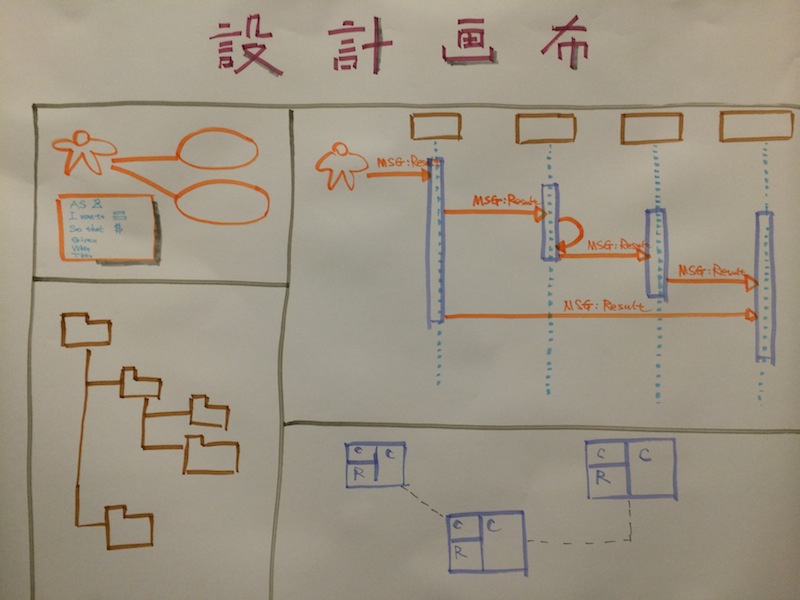 設計画布
AS
I want
So that $
Given
When
Then
MSG:Result
MSG:Result
MSG:Result
MSG:Result
MSG:Result
C C
R
C C
R
C C
R